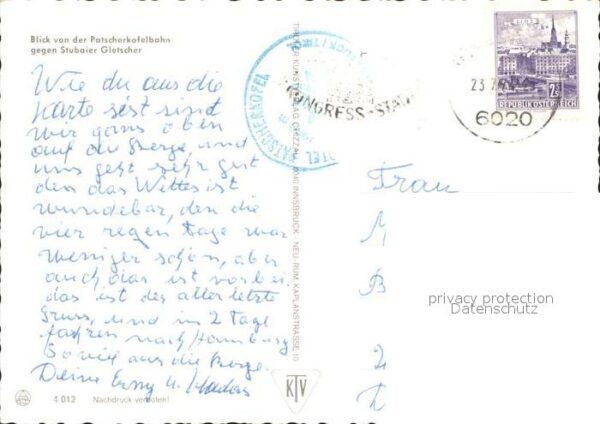 Blick von der Patscherkofelbahn
gegen Stubaier Gletscher
Wie du aus die
Karte siest sind
wir gans oben
auf der Berge und
uns geht sehr gut
den das Wetter ist
wundebar, den die
vier regen tage war
weniger schön, aber
auch das ist vorbei.
das ist der allerletzte
Gruss, und in 2 Tage
fahren nach Hamburg
Soviel aus die Berge.
Deine Erny u.
4 012 Nachdruck verboten!
TIROLER KUNSTVERLAG CHIZZALI 6040 INNSBRUCK - NEU RUM, KAPLANSTRASSE 10
KTV
PATSCHERKOFEL
KONGRESS-STADT
23.7.
6020
LINZ
2S
REPUBLIK ÖSTERREICH
Frau
M
B
2
privacy protection
Datenschutz